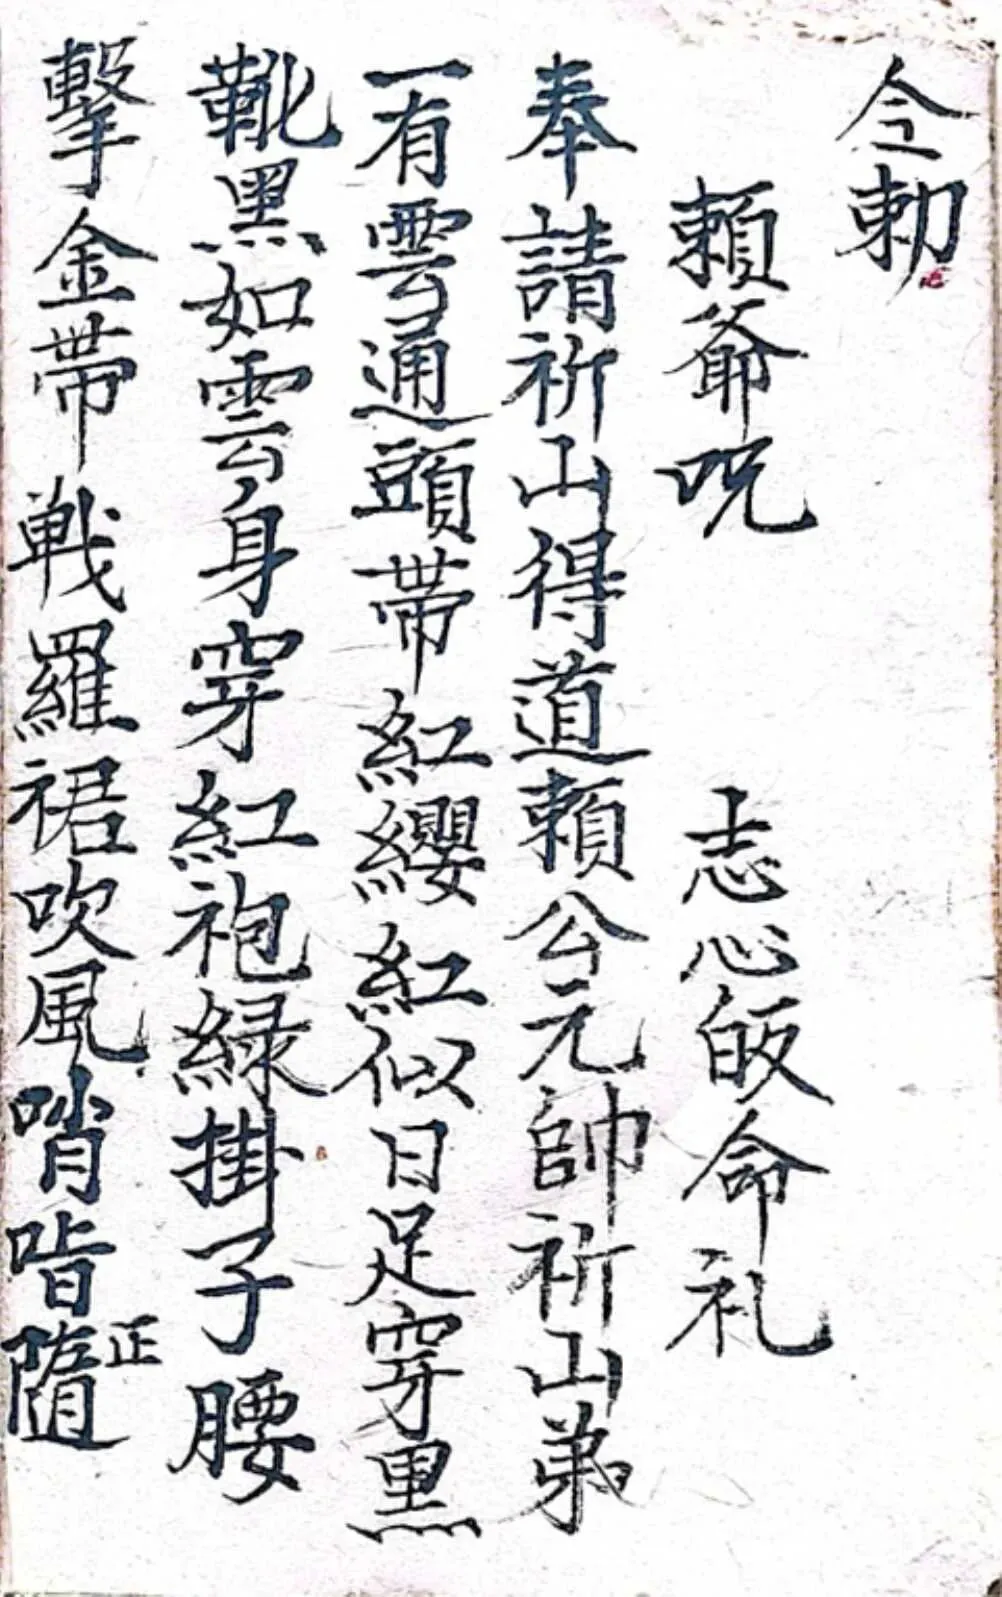 令勅
賴爺呪 志心皈命礼
奉請祈山得道賴公元帥祈山弟
一有雲通頭帶紅纓紅似日足穿黑
靴黑如雲身穿紅袍緑掛子腰
擊金帶戦羅裙吹風哨㫮隨正